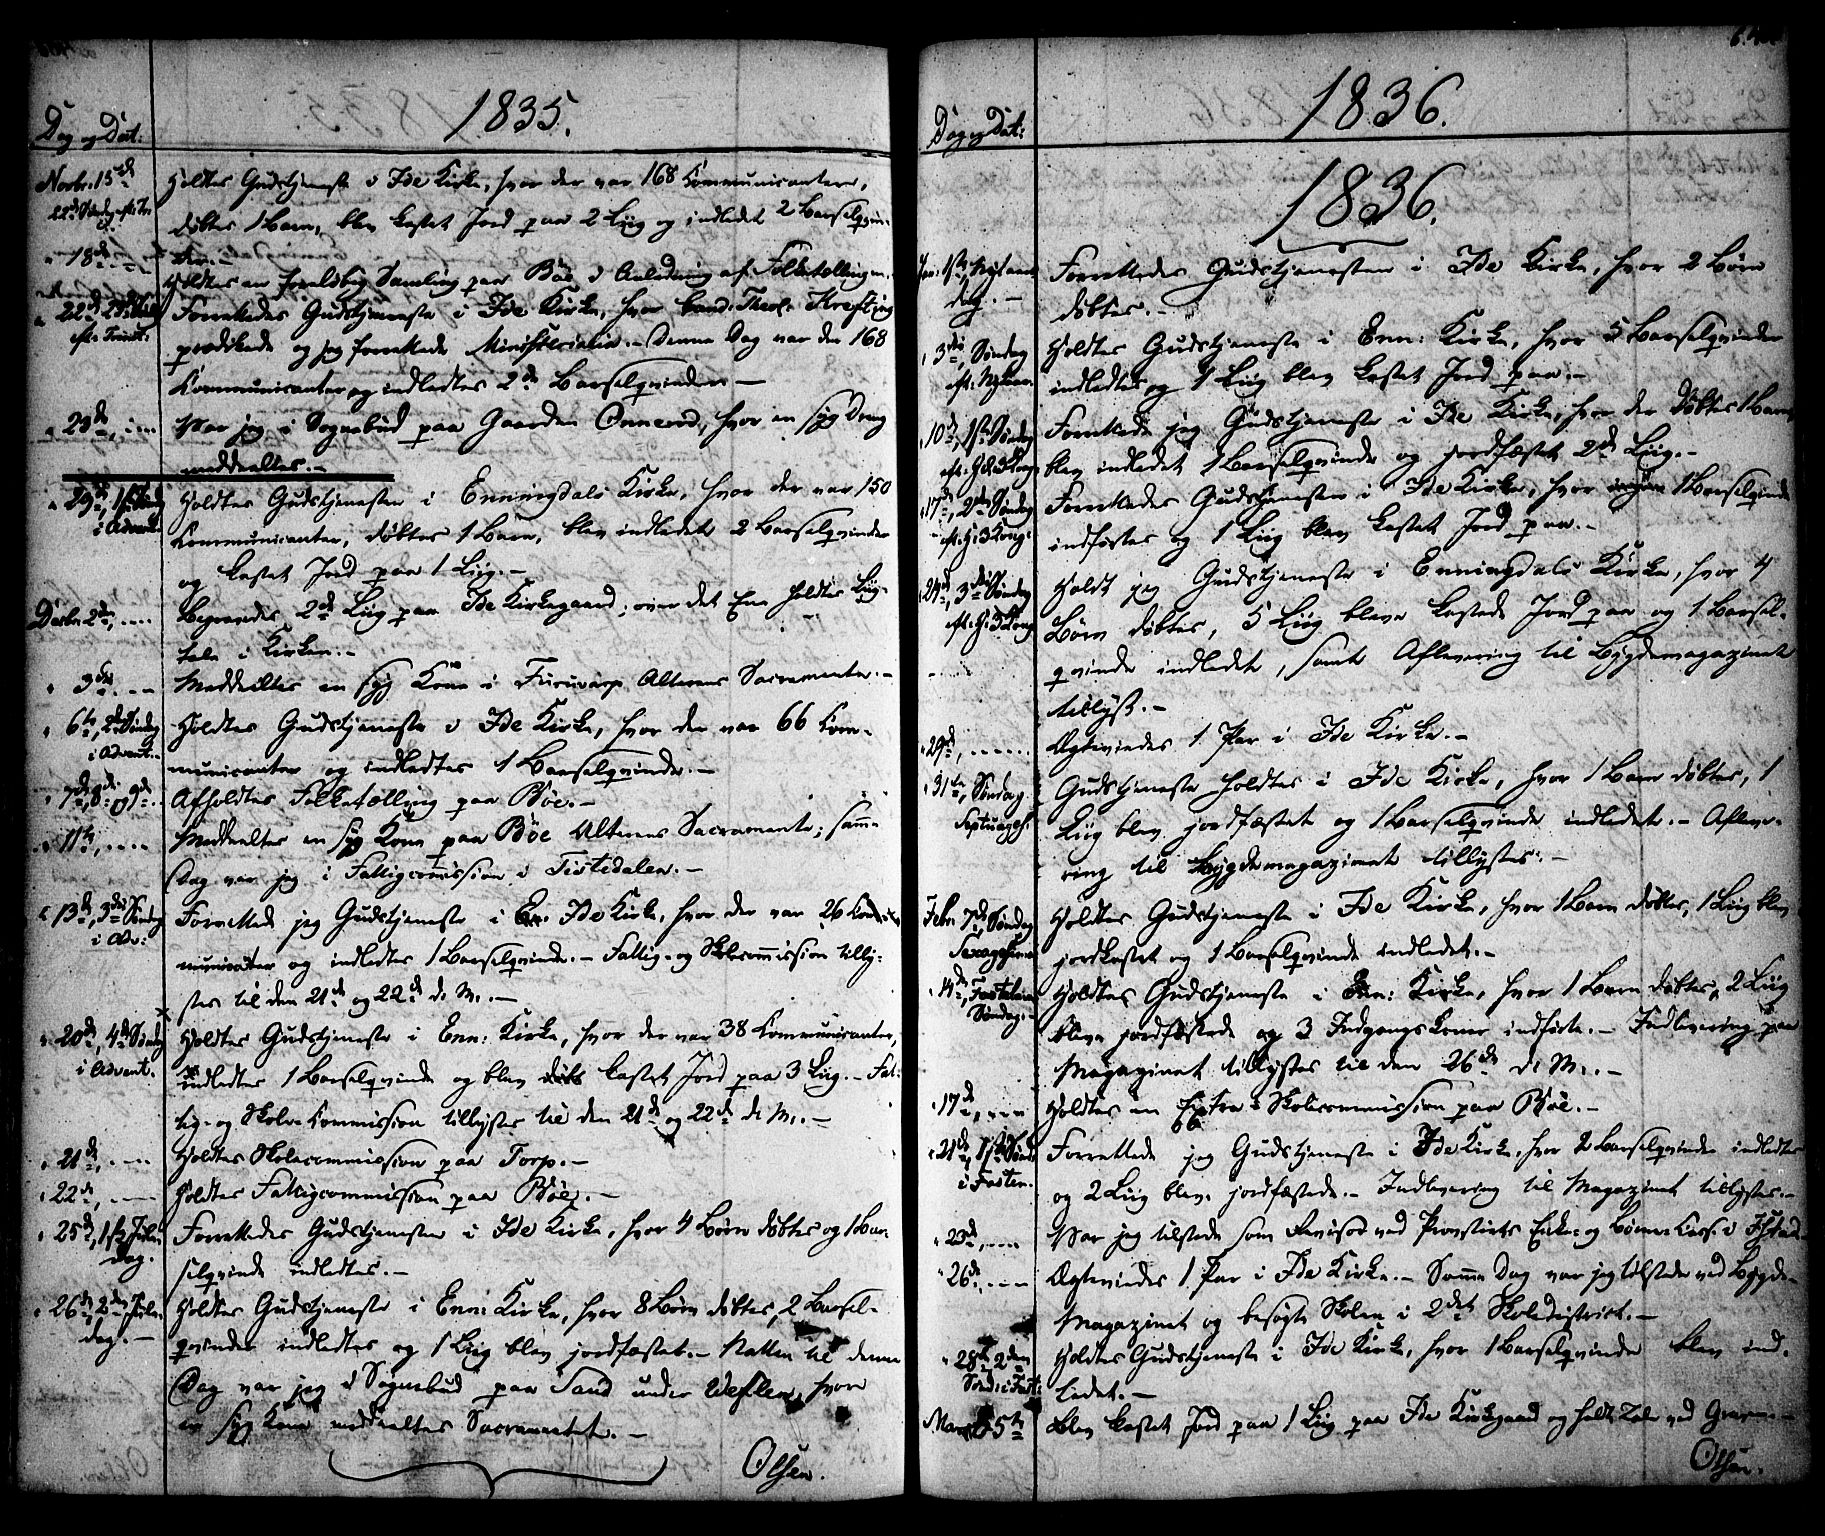 1835.
Dag og Dat:
Novbr. 15de Holdtes Gudstjeneste i Ide Kirke, hvor der var 168 Communicantere,
22de Søndag eft. Tr. døbtes 1 Barn, blev kastet Jord paa 2 Liig og indledet 2 Barselqvin-
der.-
" 18de Holdtes en foreløbig Samling paa Böe i Anledning af Folketællingen.
" 22de 23de Søndag Forrettedes Gudstjeneste i Ide Kirke, hvor Cand: Theol: Krefting
eft. Trinit: prædikede og jeg forrettede Ministerialia.- Denne Dag var der 168
Communicanter, og indledtes 2de Barselqvinder.-
" 23de, Var jeg i Sognebud paa Gaarden, hvor en syg Dreng
meddeeltes.-
" 29de, 1ste Søndag Holdtes Gudstjenesten i Enningdals Kirke, hvor der var 150
i Advent Communicanter, døbtes 1 Barn, blev indledet 2 Barselqvinder
og kastet Jord paa 1 Liig.-
Decbr. 2den, Begravedes 2de Liig paa Ide Kirkegaard; over det Ene holdtes Liig-
tale i Kirken.-
" 3die Meddeeltes en syg Kone i Alterens Sacramente.-
" 6te, 2den Søndag Holdtes Gudstjeneste i Ide Kirke, hvor der var 66 Com-
i Advent. municanter og indledtes 1 Barselqvinde.-
" 7de, 8de og 9de Afholdtes Folketælling paa Böe.-
" 11te, Meddeeltes en syg Kone paa Böe Alterens Sacramente; samme
Dag var jeg i Fattigcommission i Tistedalen.-
" 13de, 3die Søndag Forrettede jeg Gudstjeneste i Ide Kirke, hvor der var 26 Com-
i Adv: municanter og indledtes 1 Barselqvinde.- Fattig- og Skolecommission tilly-
stes til den 21de og 22de d. M.-
" 20de, 4de Søndag Holdtes Gudstjeneste i Enn: Kirke, hvor der var 38 Communicanter,
i Advent. indledtes 1 Barselqvinde og blev kastet Jord paa 3 Liig.- Fat-
tig- og Skole-Commission tillystes til den 21de og 22de d. M.-
" 21de, Holdtes Skolecommission paa Torp.-
" 22de, Holdtes Fattigcommission paa Böe.-
" 25de, 1ste Jule- Forrettedes Gudstjenesten i Ide Kirke, hvor 4 Børn døbtes og 1 Bar-
dag. selqvinde indledtes.-
" 26de, 2den Jule- Holdtes Gudstjeneste i Enn: Kirke, hvor 8 Børn døbtes, 2 Barsel-
dag.- qvinder indledtes og 1 Liig blev jordfæstet.- Natten til denne
Dag var jeg i Sognebud paa Sand under, hvor
en syg Kone meddeeltes Sacramentet.-
Olsen.
1836.
Dag og Dat:
1836.
Jan: 1ste Nytaars Forrettedes Gudstjenesten i Ide Kirke, hvor 2 Børn
dag.- døbtes.-
" 3die Søndag Holdtes Gudstjeneste i Enn: Kirke, hvor 5 Barselqvinder
eft. Nytaar. indledtes og 1 Liig blev kastet Jord paa.-
" 10de, 1ste Søndag Forrettede jeg Gudstjeneste i Ide Kirke, hvor der døbtes 1 Barn,
eft. H. 3 Kong. blev indledet 1 Barselqvinde og jordfæstet 2de Liig.-
" 17de, 2den Søndag Forrettedes Gudstjenesten i Ide Kirke, hvor 1 Barselqvinde
eft. H. 3 Kong: indførtes og 1 Liig blev kastet Jord paa.-
" 24de, 3die Søndag Holdt jeg Gudstjeneste i Enningdals Kirke, hvor 4
eft. H. 3 Kong Børn døbtes, 5 Liig bleve kastede Jord paa og 1 Barsel-
qvinde indledet, samt Aflevering til Bygdemagazinet
tillyst.-
" 29de, Ægteviedes 1 Par i Ide Kirke.-
" 31te, Søndag Gudstjeneste holdtes i Ide Kirke, hvor 1 Barn døbtes, 1
Septuages. Liig blev jordfæstet og 1 Barselqvinde indledet.- Afleve-
ring til Bygdemagazinet tillystes.-
Febr: 7de, Søndag Holdtes Gudstjeneste i Ide Kirke, hvor 1 Barn døbtes, 1 Liig blev
Sexagesima jordkastet og 1 Barselqvinde indledet.-
" 14de, Fastelavns Holdtes Gudstjeneste i Enn: Kirke, hvor 1 Barn døbtes, 2 Liig
Søndag.- bleve jordfæstede og 3 Indgangskoner indførte.- Indlevering paa
Magazinet tillystes til den 26de d. M.-
" 17de, Holdtes en Extra Skolecommission paa Böe.-
" 21de, 1ste Sønd: Forrettede jeg Gudstjeneste i Ide Kirke, hvor 2 Barselqvinder indledtes
i Fasten. og 2 Liig bleve jordfæstede.- Indlevering til Magazinet tillystes.-
" 23de, Var jeg tilstede som Revisor ved Provstiets Enke- og Børne-Casse i
" 26de Ægteviedes 1 Par i Ide Kirke.- Samme Dag var jeg tilstede ved Bygde-
Magazinet og besøgte Skolen i 2det Skoledistrict.-
" 28de 2den Holdtes Gudstjeneste i Ide Kirke, hvor 1 Barselqvinde blev ind-
Sønd: i Fast: ledet.-
Marts 5te Blev kastet Jord paa 1 Liig paa Ide Kirkegaard og holdt Tale ved Graven.-
Olsen.